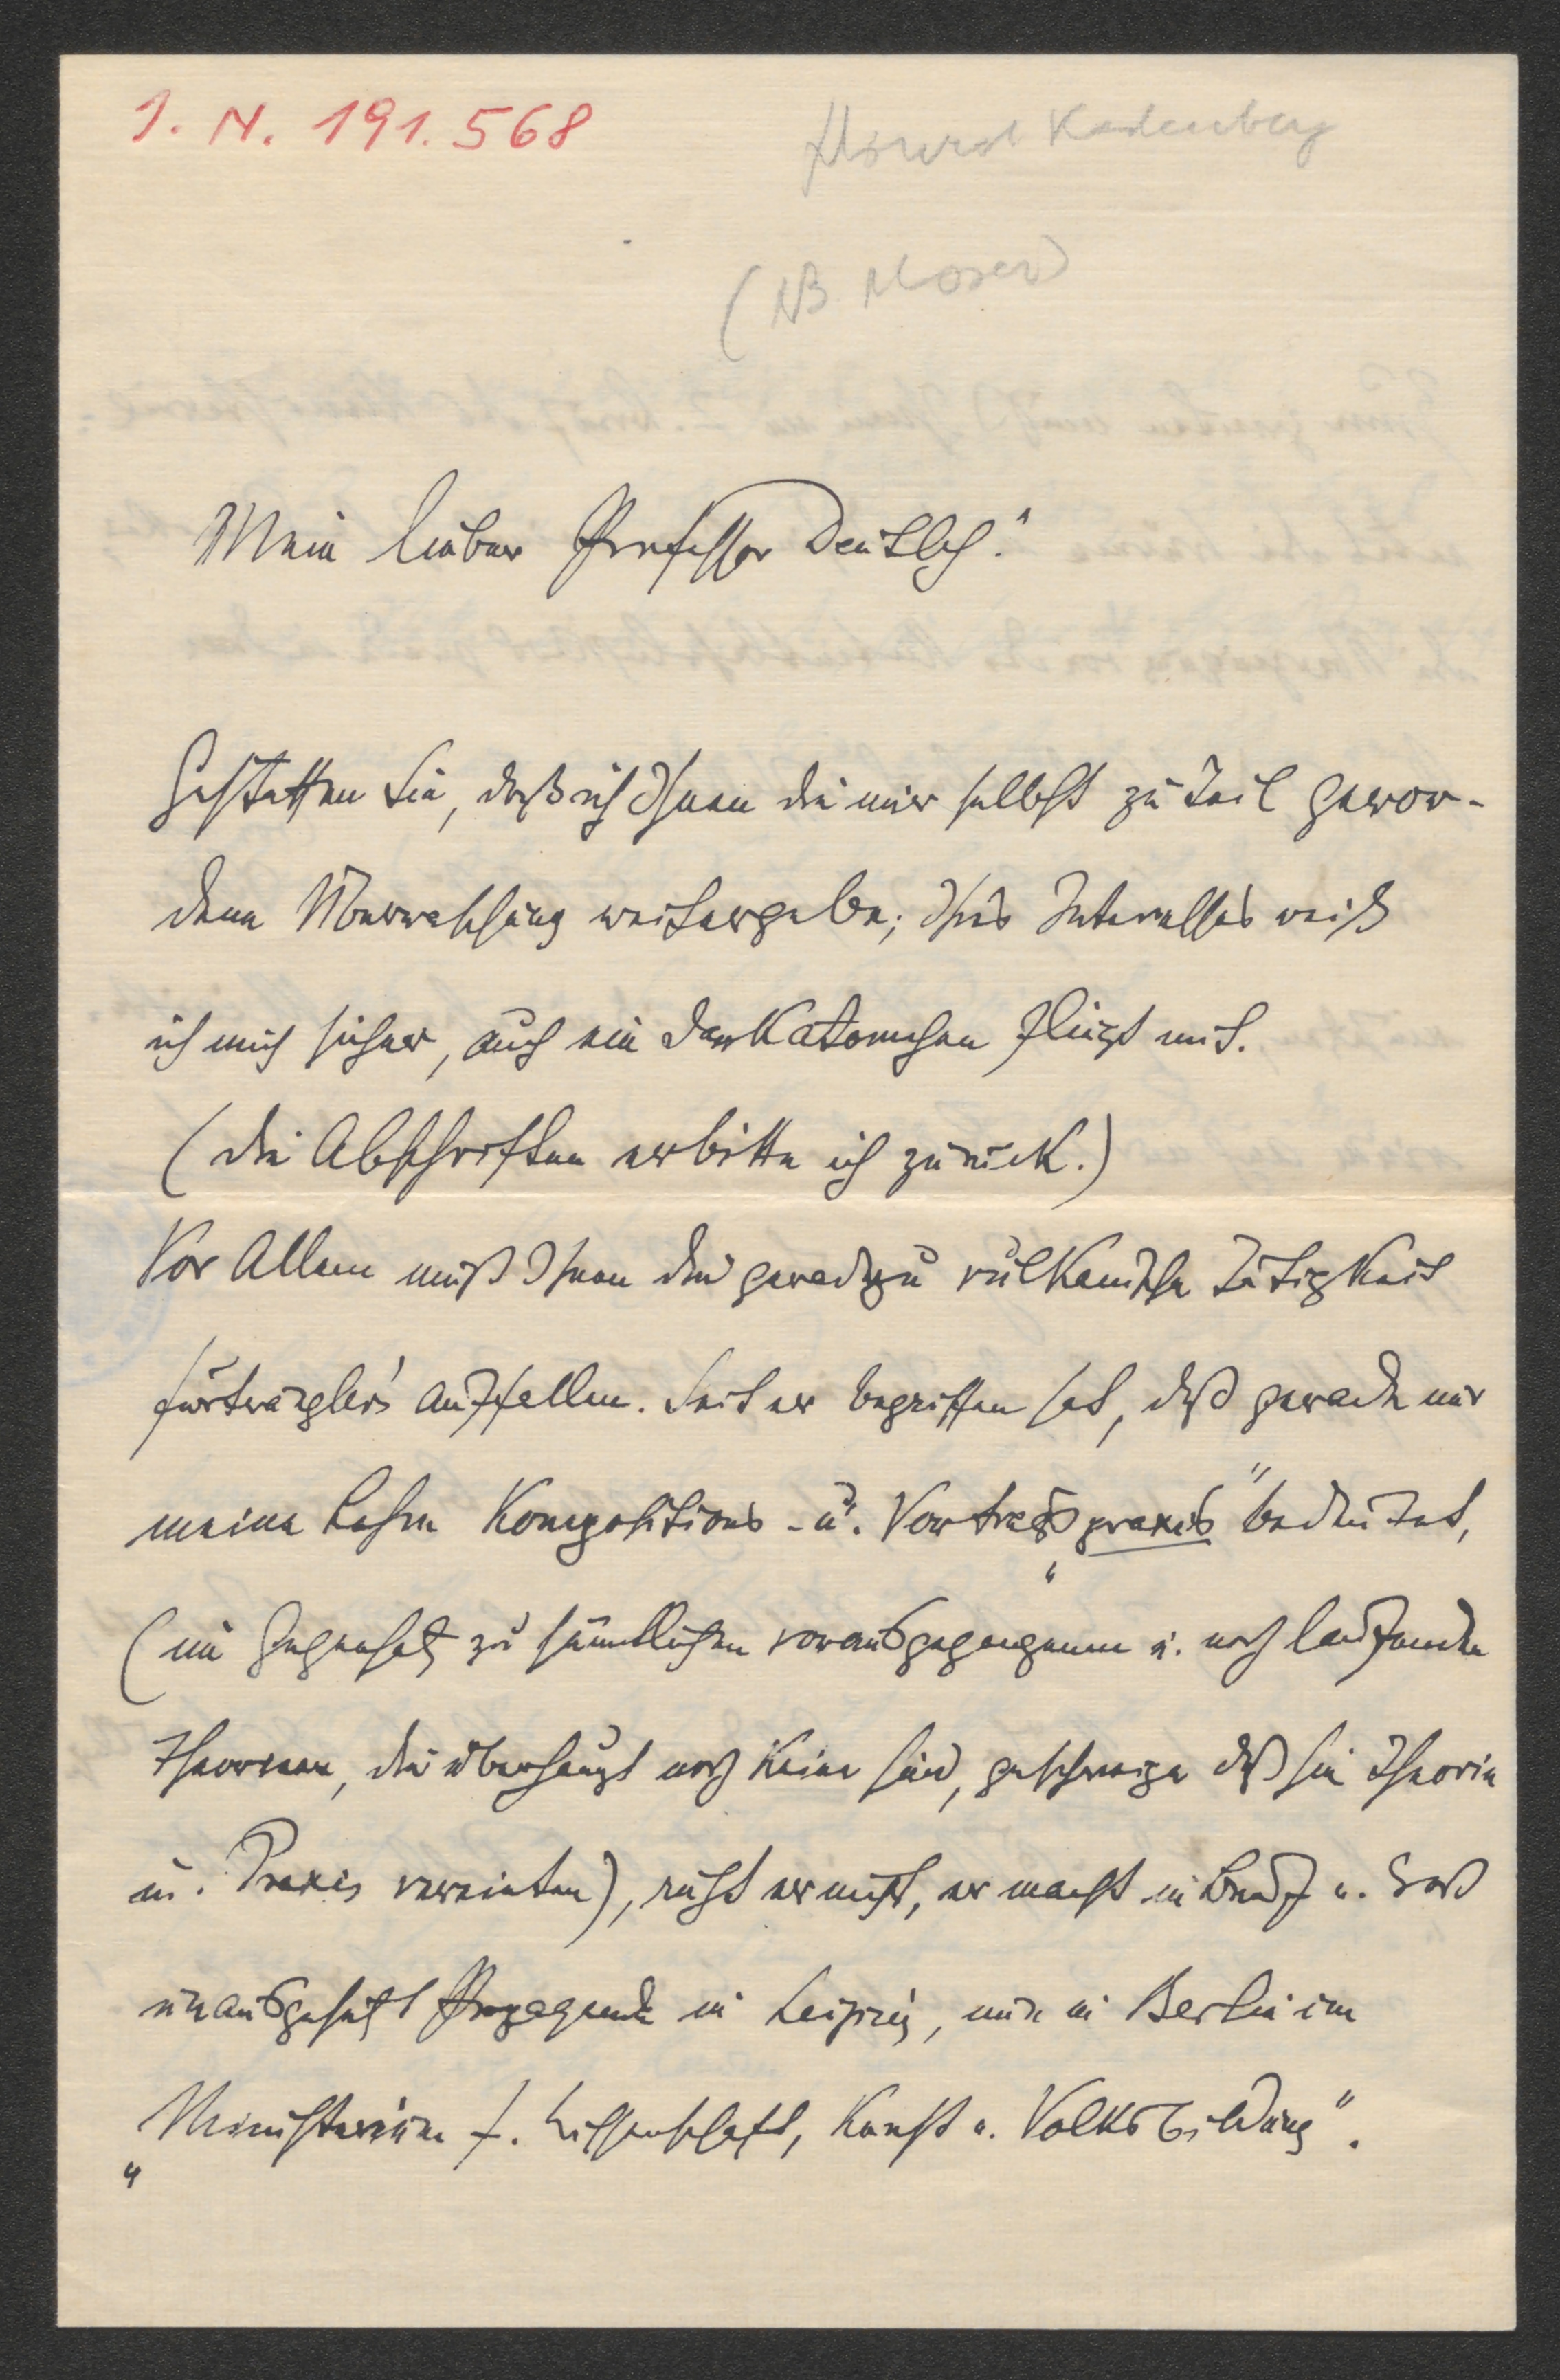 I. N. 191.568
(NB Moser)
Mein lieber Professor Deutsch!
Gestatten Sie, daß ich Ihnen die mir selbst zu Teil gewor-
dene Überraschung weitergebe; Ihres Interesses weiß
ich mich sicher, auch ein Dankatomchen fliegt mit.
(Die Abschriften erbitte ich zurück.)
Vor Allem muß Ihnen die geradezu vulkanische Tätigkeit
Furtwängler's auffallen. Seit er begriffen hat, daß gerade nur
meine Lehre Kompositions- u. Vortrags„praxis" bedeutet,
(im Gegensatz zu sämtlichen vorausgegangenen u. noch laufenden
Theorieen, die überhaupt noch keine sind, geschweige daß sie Theorie
u. Praxis vereinten), ruht er nicht, er macht in Brief u.
unausgesetzt Propaganda in Leipzig, nun in Berlin im
„Ministerium f. Wissenschaft, Kunst u. Volksbildung".